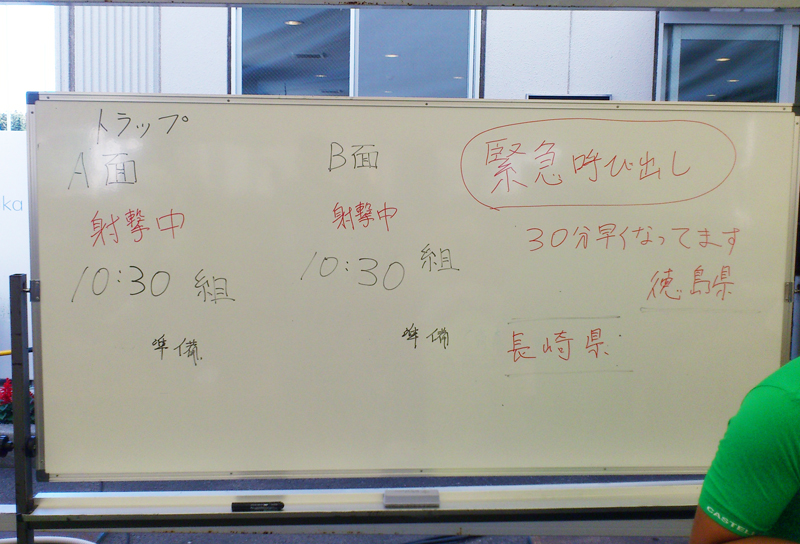 トラップ
A面
射撃中
10:30 組
準備
B面
射撃中
10:30 組
準備
緊急呼び出し
30分早くなってます
徳島県
長崎県
ka
CASTEL